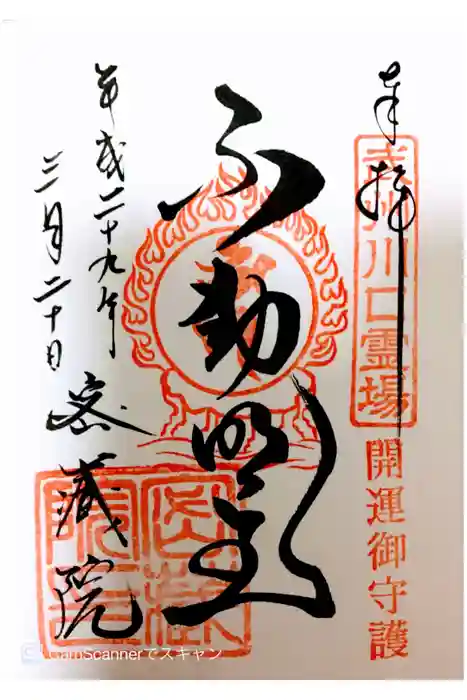 奉拝
武州川口霊場
開運御守護
不動明王
平成二十九年
三月二十日
密蔵院
密蔵院印
CamScannerでスキャン